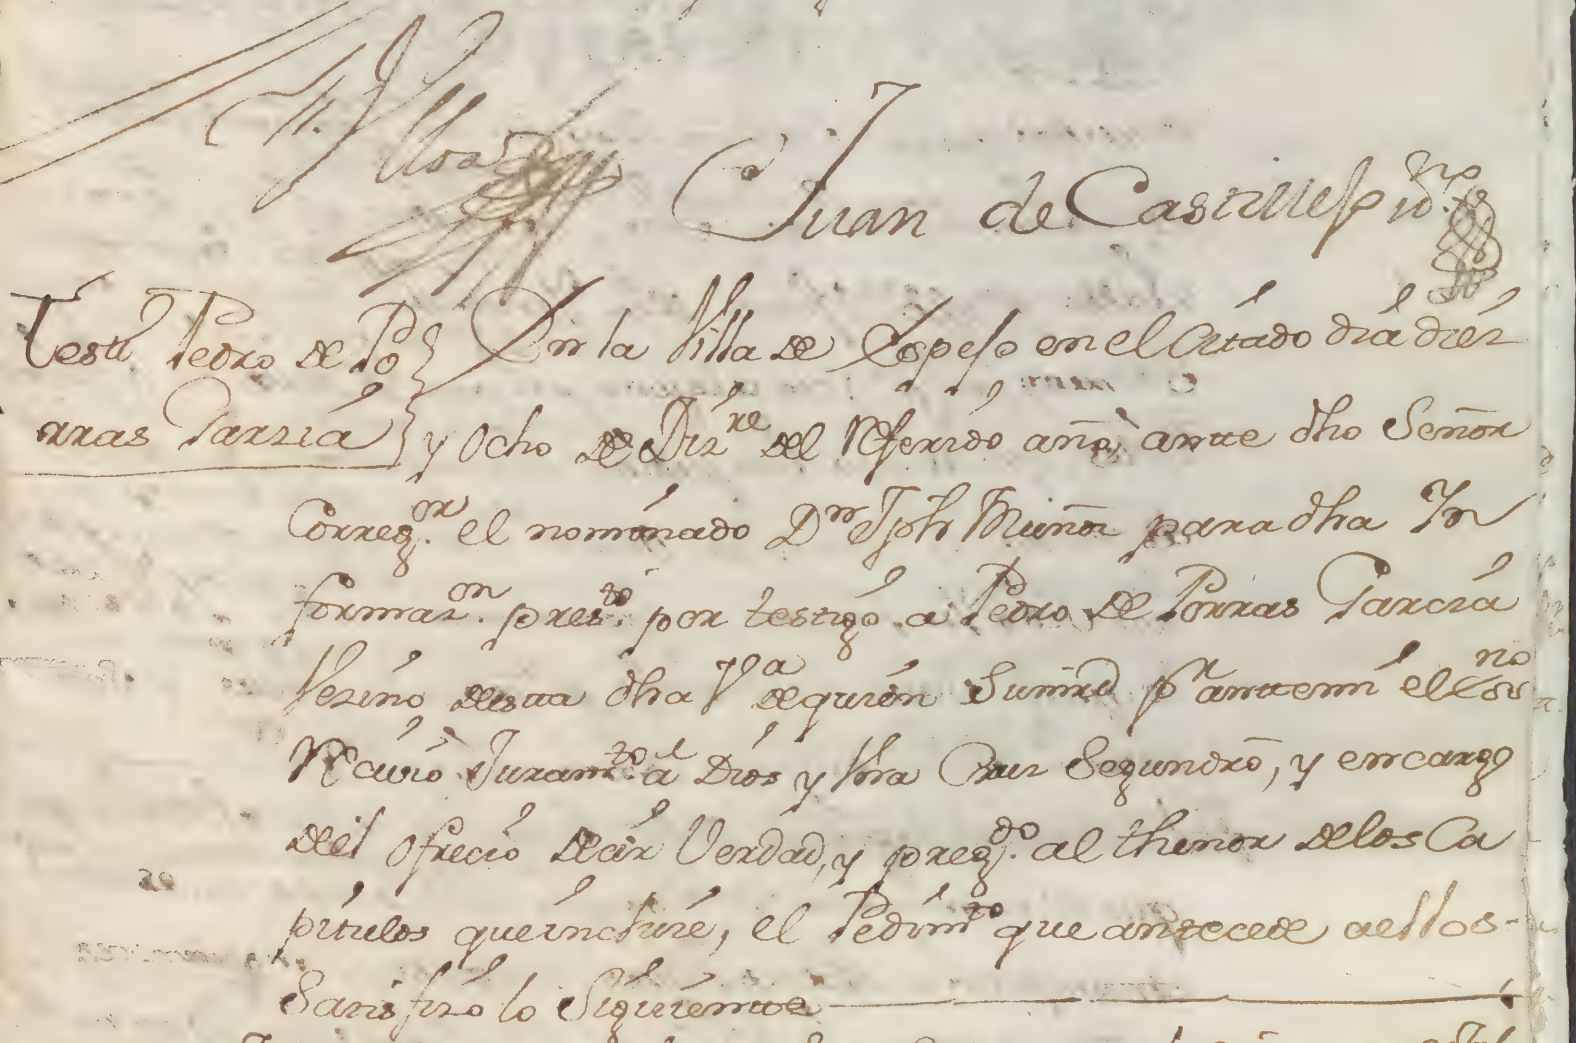 Ulloa
Juan de Castillejo
Testº Pedro de Po En la Villa de Espejo en el Citado dia diez
rras Garzia y Ocho de Dizre del Referido año, ante dho Señor
Corregor. el nominado Dn Jph Muñoz para dha In
formazon. presto. por testigo a Pedro de Porras Garcia
Vezino desta dha Va de quien Sumrd pr antemi el Essno
Recivio Juramto. a Dios y Una Cruz Segun dro, y encargo
del ofrecio decir Verdad, y pregdo. al thenor delos Ca
pitulos que incluie, el Pedimto que antecede aellos
Satisfizo lo Siguiente